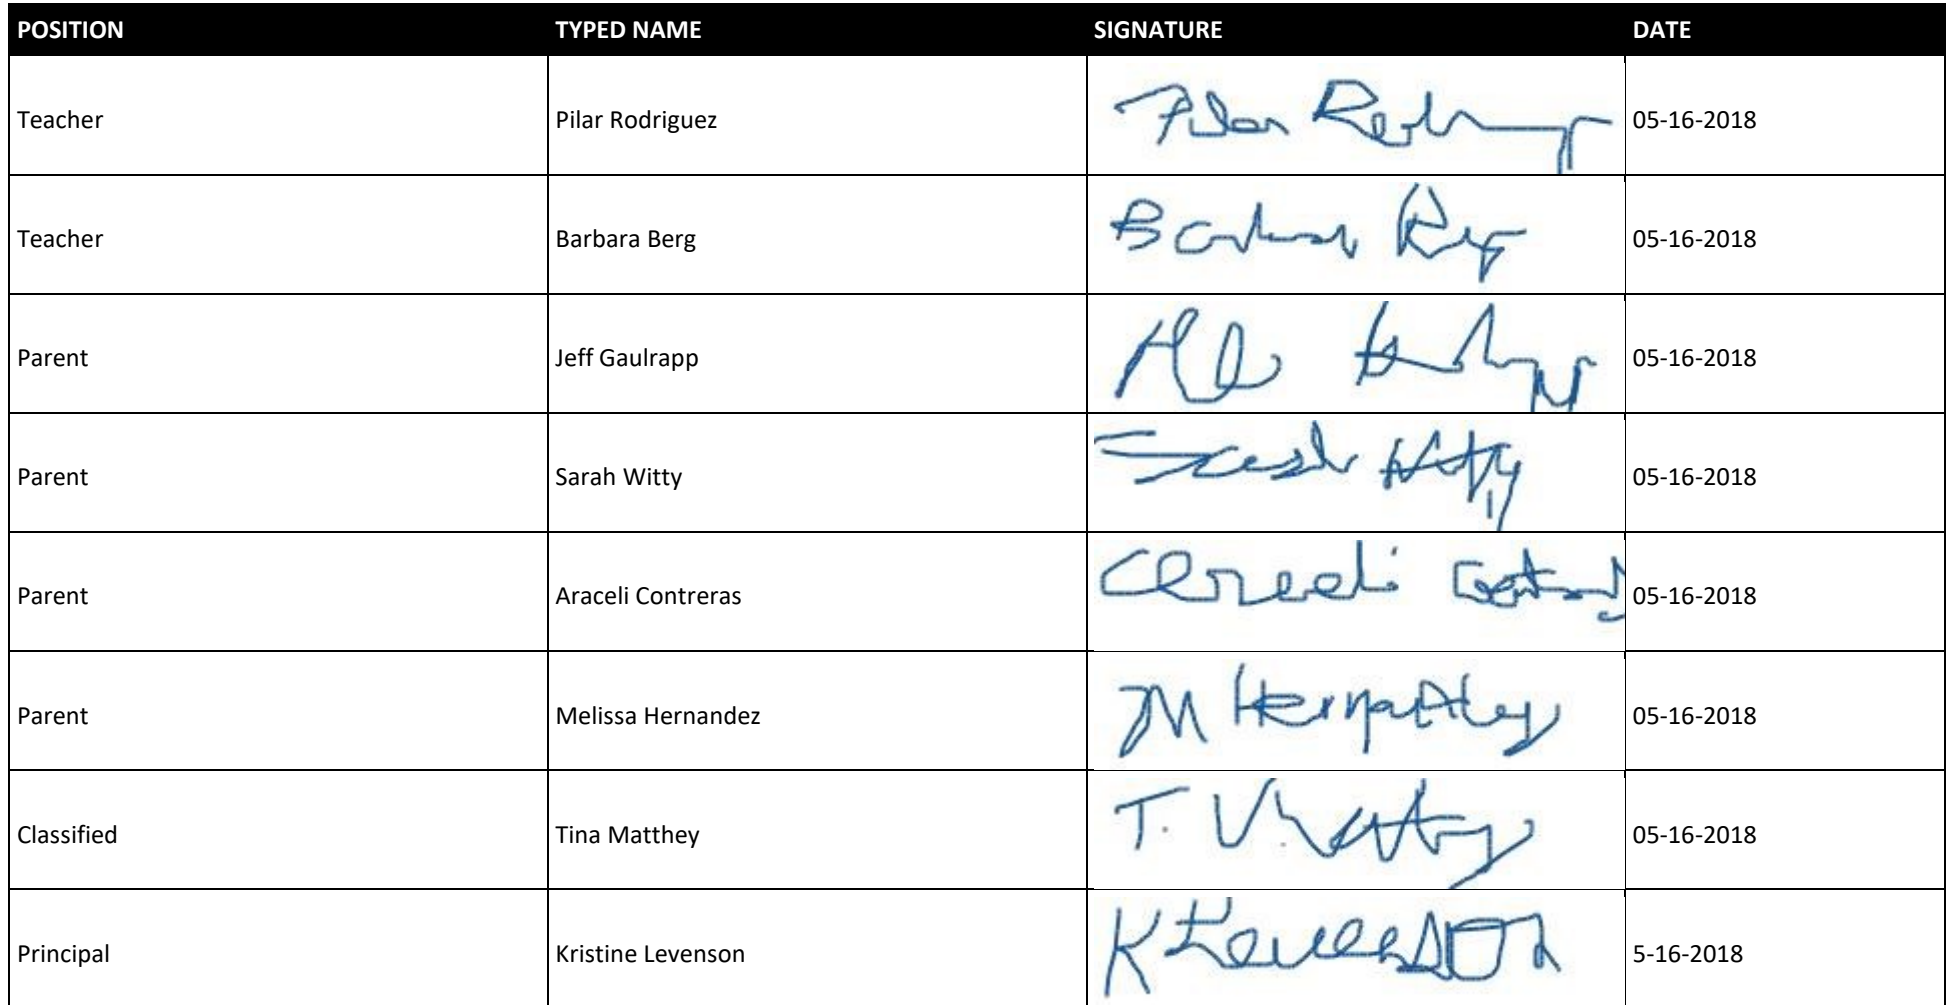 POSITION TYPED NAME SIGNATURE DATE
Teacher Pilar Rodriguez 05-16-2018
Teacher Barbara Berg 05-16-2018
Parent Jeff Gaulrapp 05-16-2018
Parent Sarah Witty Sarah Witty 05-16-2018
Parent Araceli Contreras Araceli 05-16-2018
Parent Melissa Hernandez M Hernandez 05-16-2018
Classified Tina Matthey T. 05-16-2018
Principal Kristine Levenson K Levenson 5-16-2018